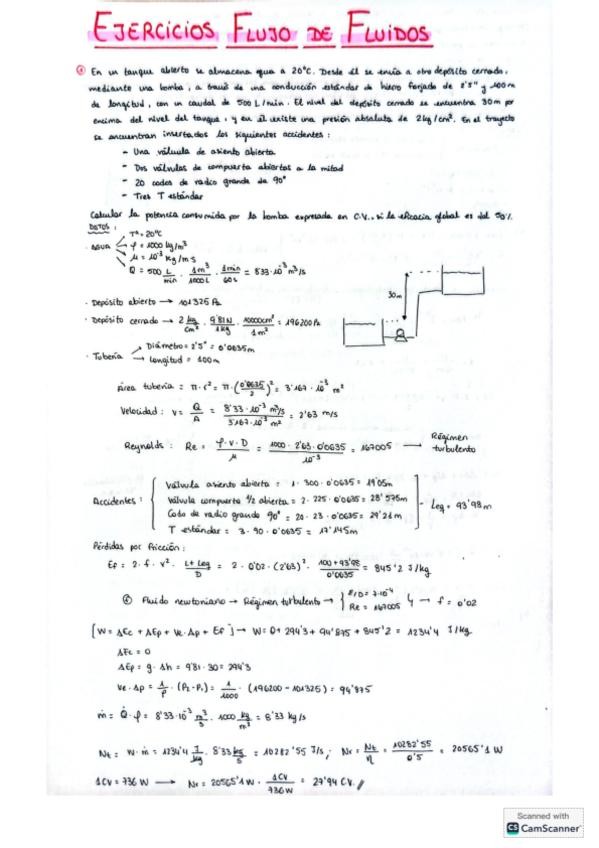 EJERCICIOS FLUJO DE FLUIDOS
① En un tanque abierto se almacena agua a 20°C. Desde él se envía a otro depósito cerrado,
mediante una bomba, a través de una conducción estándar de hierro forjado de 2'5" y 100m
de longitud, con un caudal de 500 L/min. El nivel del depósito cerrado se encuentra 30m por
encima del nivel del tanque, y en él existe una presión absoluta de 2kg/cm². En el trayecto
se encuentran insertados los siguientes accidentes:
- Una válvula de asiento abierta
- Dos válvulas de compuerta abiertas a la mitad
- 20 codos de radio grande de 90°
- Tres T estándar
Calcular la potencia consumida por la bomba expresada en C.V., si la eficacia global es del 50%.
DATOS:
· AGUA
Tª = 20°C
ρ = 1000 kg/m³
μ = 10⁻³ kg/m s
Q = 500 L/min · 1m³/1000L · 1min/60s = 8'33·10⁻³ m³/s
· Depósito abierto → 101325 Pa
· Depósito cerrado → 2 kg/cm² · 9'81N/1kg · 10000cm²/1m² = 196200 Pa
· Tubería
Diámetro = 2'5" = 0'0635m
Longitud = 100m
30m
Área tubería = π · r² = π · (0'0635/2)² = 3'167 · 10⁻³ m²
Velocidad: v = Q/A = 8'33 · 10⁻³ m³/s / 3'167 · 10⁻³ m² = 2'63 m/s
Reynolds: Re = ρ · v · D / μ = 1000 · 2'63 · 0'0635 / 10⁻³ = 167005 → Régimen turbulento
Accidentes:
Válvula asiento abierta = 1 · 300 · 0'0635 = 19'05m
Válvula compuerta 1/2 abierta = 2 · 225 · 0'0635 = 28'575m
Codo de radio grande 90° = 20 · 23 · 0'0635 = 29'21m
T estándar = 3 · 90 · 0'0635 = 17'145m
Leq = 93'98m
Pérdidas por fricción:
Ef = 2 · f · v² · L + Leq / D = 2 · 0'02 · (2'63)² · 100 + 93'98 / 0'0635 = 845'2 J/kg
Fluido newtoniano → Régimen turbulento → { E/D = 7·10⁻⁴ Re = 167005 } → f = 0'02
[W = ΔEc + ΔEp + Ve · Δp + Ef] → W = 0 + 294'3 + 94'875 + 845'2 = 1234'4 J/kg
ΔEc = 0
ΔEp = g · Δh = 9'81 · 30 = 294'3
Ve · Δp = 1/ρ · (P₂ - P₁) = 1/1000 · (196200 - 101325) = 94'875
ṁ = Q · ρ = 8'33·10⁻³ m³/s · 1000 kg/m³ = 8'33 kg/s
Nt = W · ṁ = 1234'4 J/kg · 8'33 kg/s = 10282'55 J/s; Nr = Nt/η = 10282'55/0'5 = 20565'1 W
1CV = 736 W → Nr = 20565'1 W · 1CV/736W = 27'94 CV.
Scanned with
CS CamScanner